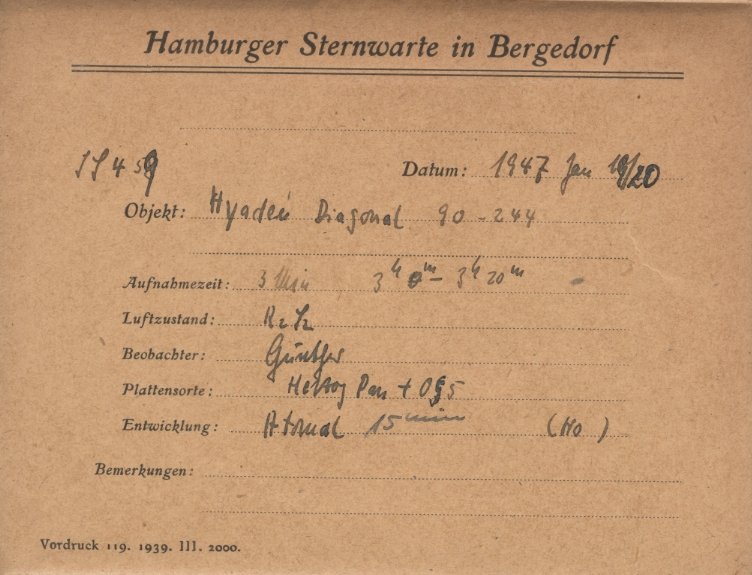 Hamburger Sternwarte in Bergedorf
Datum: 1947 Jan 19/20
Objekt: Hyaden Diagonal 90 - 244
Aufnahmezeit: 3 Min 3h 0m - 3h 20m
Luftzustand: R2 S2
Beobachter: Günther
Plattensorte: Herzog Pan + OG5
Entwicklung: Atomal 15 min (Ho)
Bemerkungen:
Vordruck 119. 1939. III. 2000.